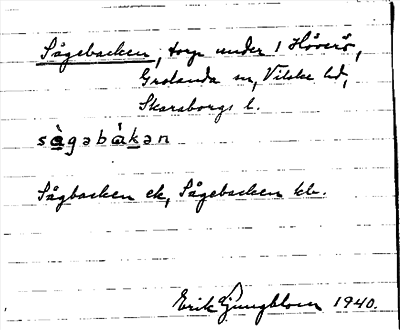 Sågebacken, torp under 1 Höverö,
Grolanda sn, Vilske hd,
Skaraborgs l.
sàgəbàkən
Sågbacken ek, Sågebacken kb.
Erik Ljungblom 1940.